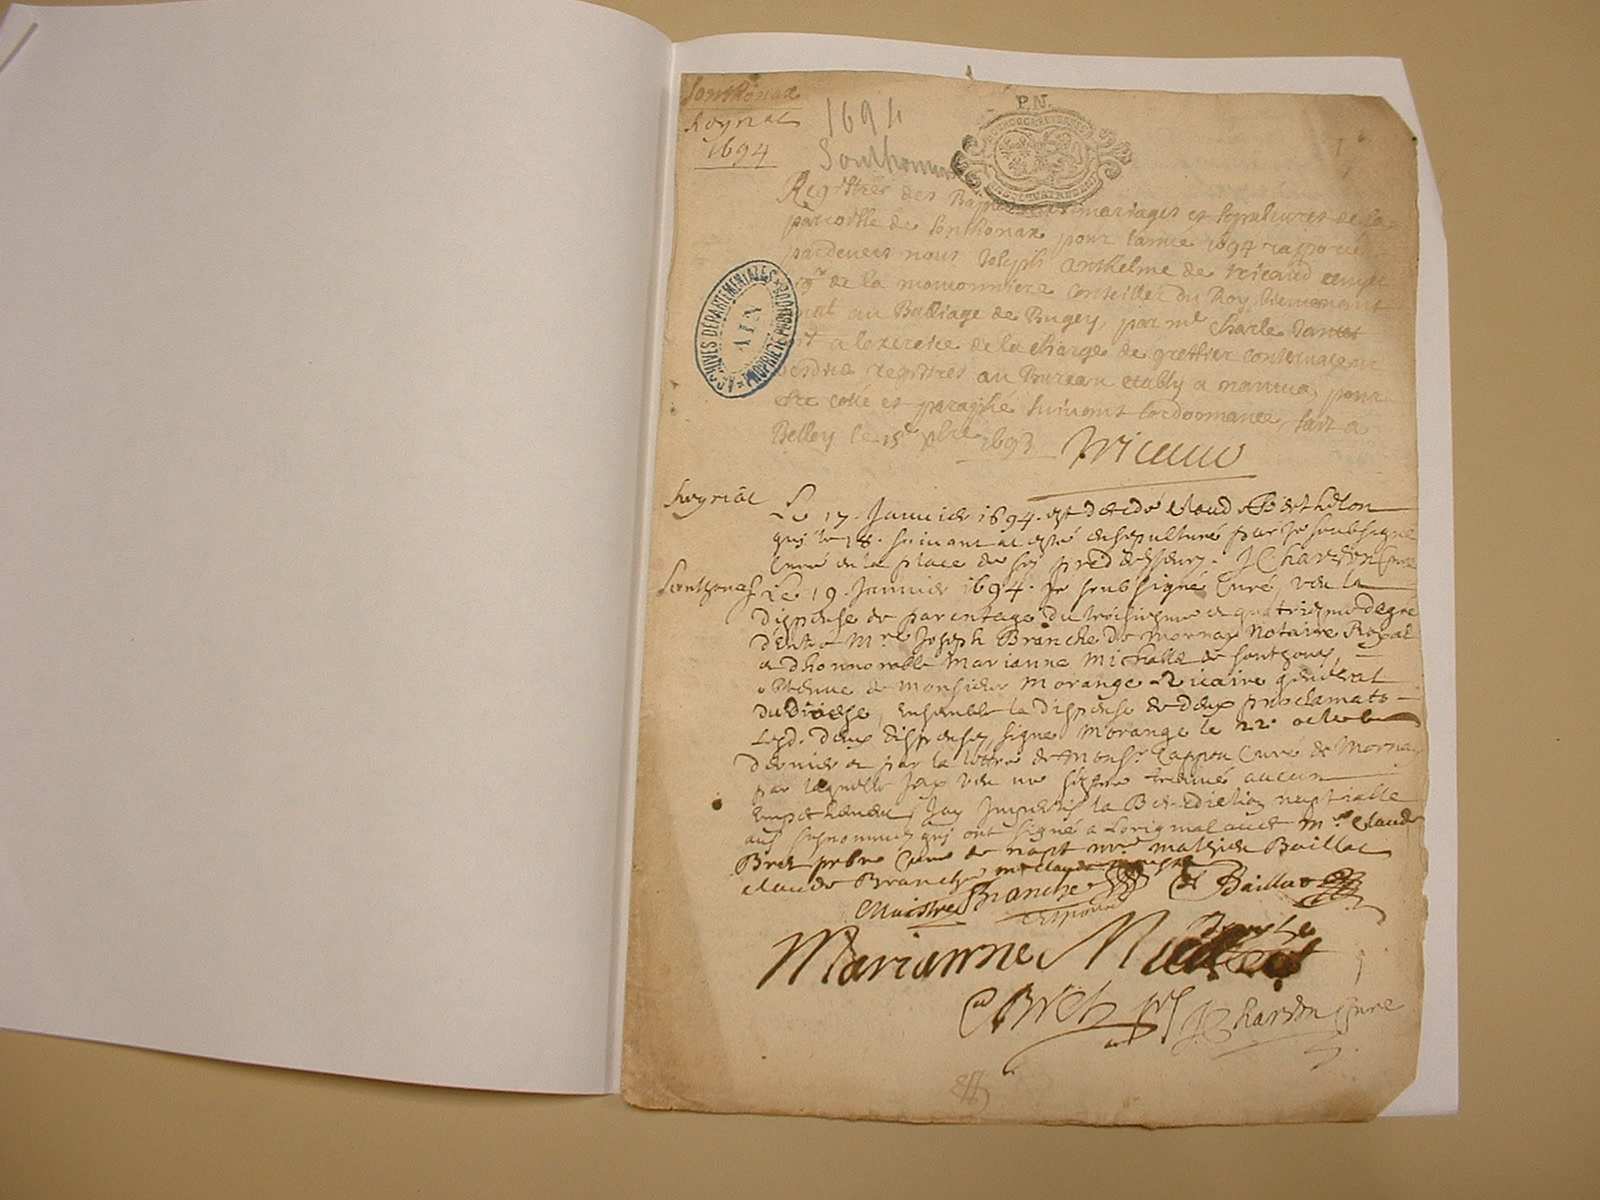 Sonthonax
heyriat
1694
1694
Sonthonnax
P.N.
ARCHIVES DÉPARTEMENTALES
AIN
PROPRIÉTÉ PUBLIQUE
Registres des Baptesmes mariages et sepultures de la
parroisse de Sonthonax pour lannee 1694 rapporté
pardevers nous Joseph Anthelme de tricaud
de la conseiller du Roy Lieutenant
au Balliage de Bugey, par me Charle
a lexercice de la charge de greffier conservateur
desdits registres au Bureau estably a nantua, pour
estre cotté et paraphé suivant lordonnance, fait a
Belley le 15e xbre 1693 Tricaud
heyriat
Le 17. Janvier 1694. est decedé Claud Berthelon
qui le 18. suivant a esté ensepulturé par je soubsigné
Curé en la place de ses predecesseurs. J Chardon Curé
Sonthonax
Le 19. Janvier 1694. Je soubsigné Curé, veu la
dispense de parentage du troisiesme et quatriesme degré
dentre Mre Joseph Branche de mornay Notaire Royal
et dhonnorable Marianne Michalle de Sonthonax,
obtenue de Monsieur Morange vicaire général
du Diocese, ensemble la dispense de deux proclamato
Lesd. deux dispenses signé Morange le 22 octobre
dernier et par la lettre de Monsr Cappon Curé de Mornay
par laquelle jay veu ne sestre treuvé aucun
empechement, Jay Imparti la Benediction nuptialle
aux susnommés qui ont signé a Loriginal avec mre Claude
Bret prbre Curé de napt mre mathieu Baillat
claude Branche, mre claude
Maistre Branche Baillat
espoux
Marianne
C Bret J Chardon Curé